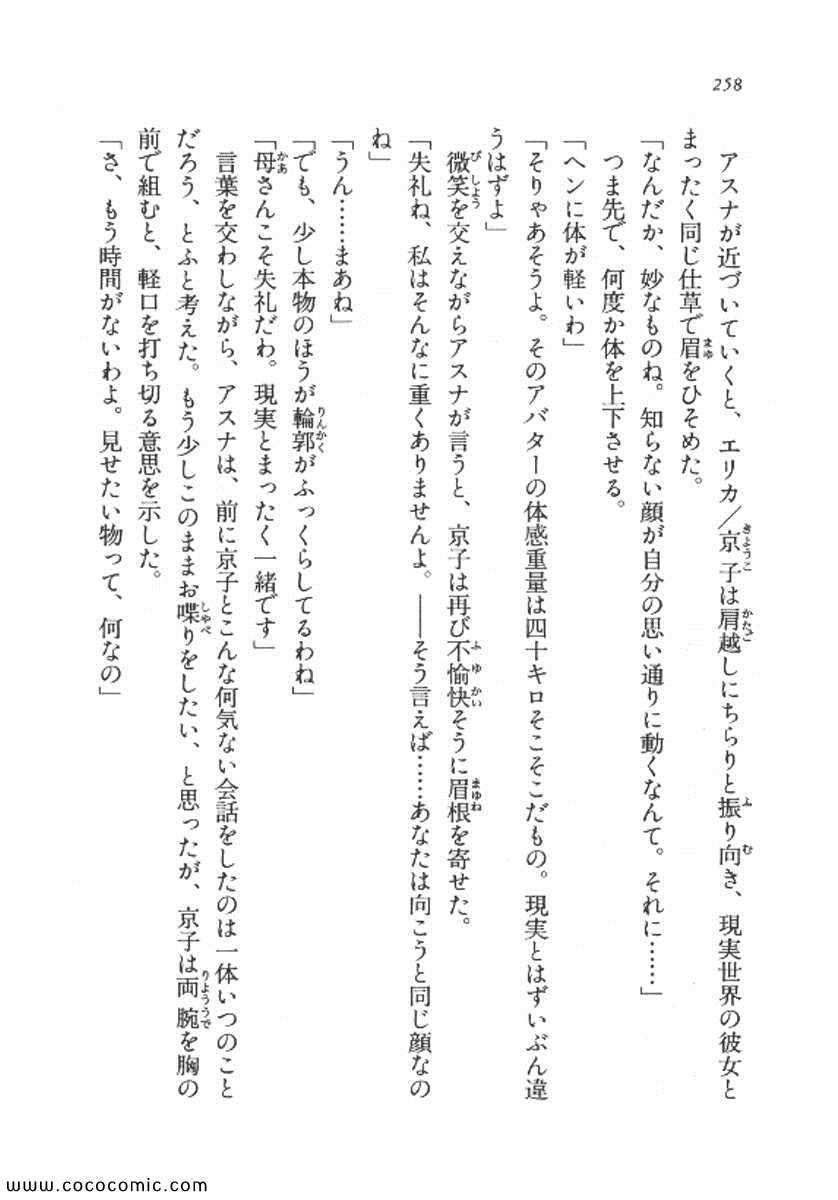 258
アスナが近づいていくと、エリカ／京子は肩越しにちらりと振り向き、現実世界の彼女と
まったく同じ仕草で眉をひそめた。
「なんだか、妙なものね。知らない顔が自分の思い通りに動くなんて。それに……」
つま先で、何度か体を上下させる。
「ヘンに体が軽いわ」
「そりゃあそうよ。そのアバターの体感重量は四十キロそこそこだもの。現実とはずいぶん違
うはずよ」
微笑を交えながらアスナが言うと、京子は再び不愉快そうに眉根を寄せた。
「失礼ね、私はそんなに重くありませんよ。――そう言えば……あなたは向こうと同じ顔なの
ね」
「うん……まあね」
「でも、少し本物のほうが輪郭がふっくらしてるわね」
「母さんこそ失礼だわ。現実とまったく一緒です」
言葉を交わしながら、アスナは、前に京子とこんな何気ない会話をしたのは一体いつのこと
だろう、とふと考えた。もう少しこのままお喋りをしたい、と思ったが、京子は両腕を胸の
前で組むと、軽口を打ち切る意思を示した。
「さ、もう時間がないわよ。見せたい物って、何なの」
www.cococomic.com/